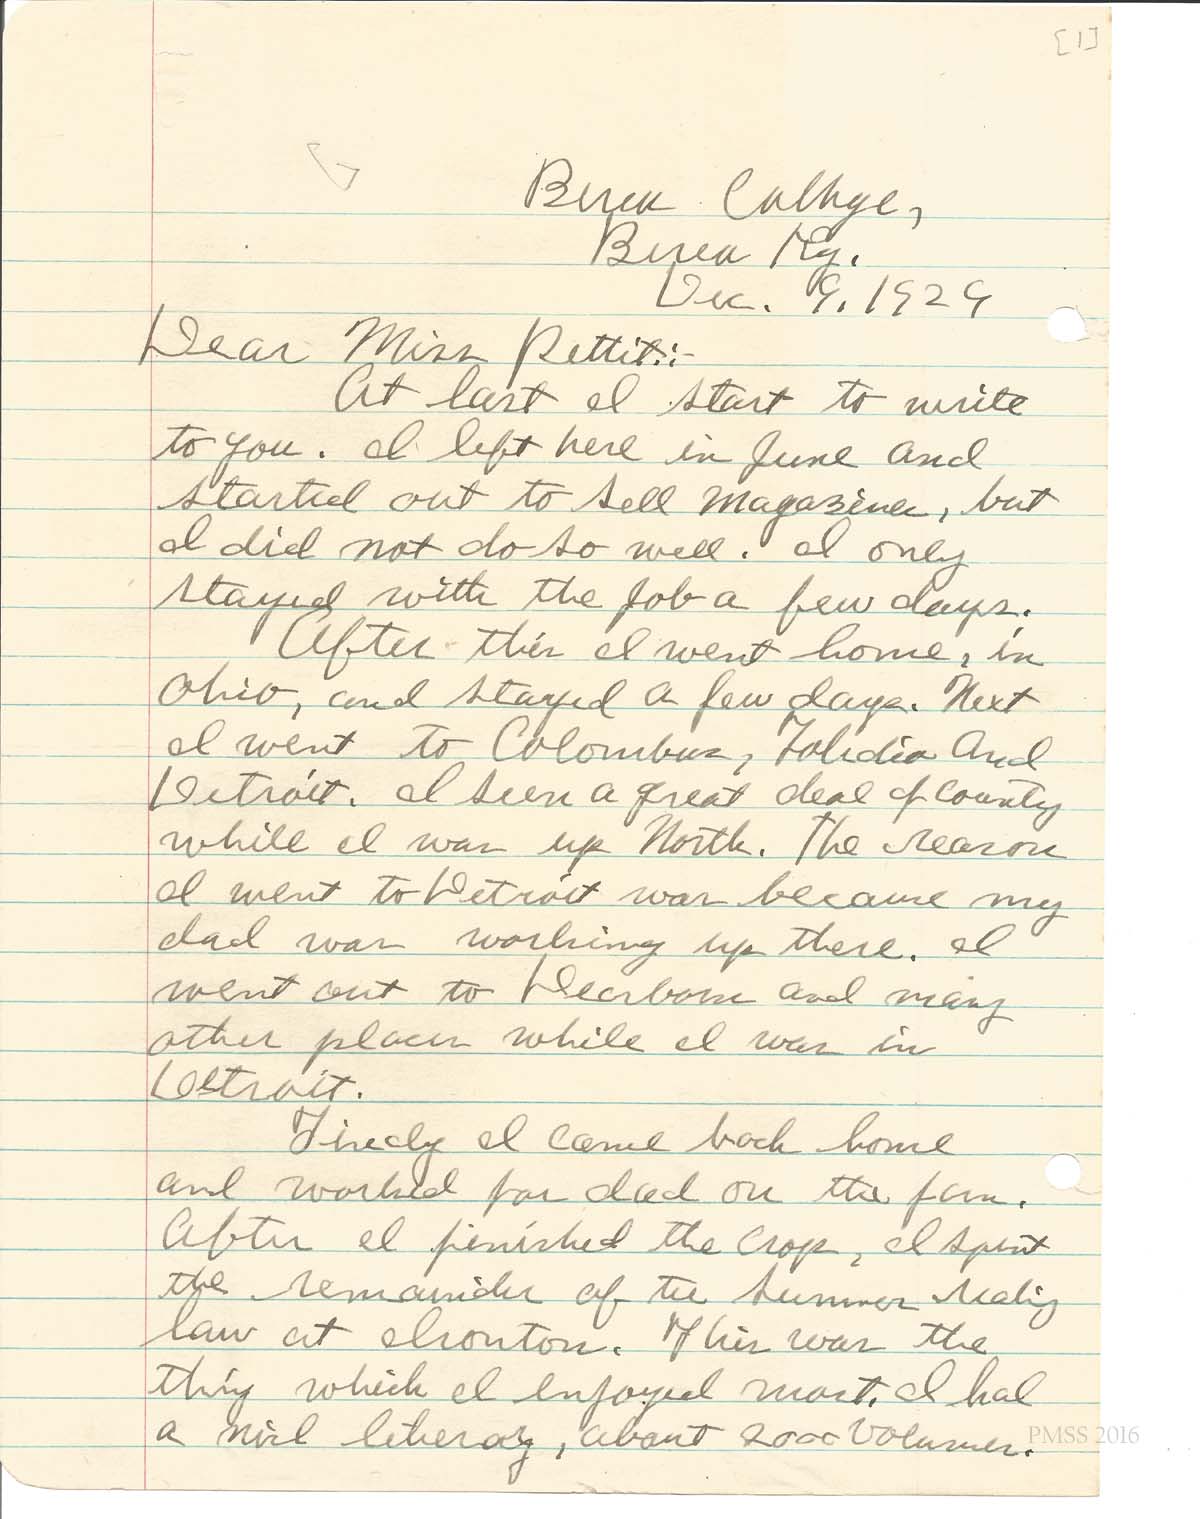 [1]
Berea College,
Berea Ky.
Dec. 9, 1929
Dear Miss Pettit:-
At last I start to write
to you. I left here in June and
started out to sell magazines, but
I did not do so well. I only
stayed with the job a few days.
After this I went home, in
Ohio, and stayed a few days. Next
I went to Colombus, Toledio and
Detroit. I seen a great deal of county
while I was up North. The reason
I went to Detroit was because my
dad was working up there. I
went out to Dearborn and many
other places while I was in
Detroit.
Finely I came back home
and worked for dad on the farm.
After I finished the crops, I spent
the remainder of the summer reading
law at Ironton. This was the
thing which I enjoyed most. I had
a nice literary, about 2000 volumes.
PMSS 2016